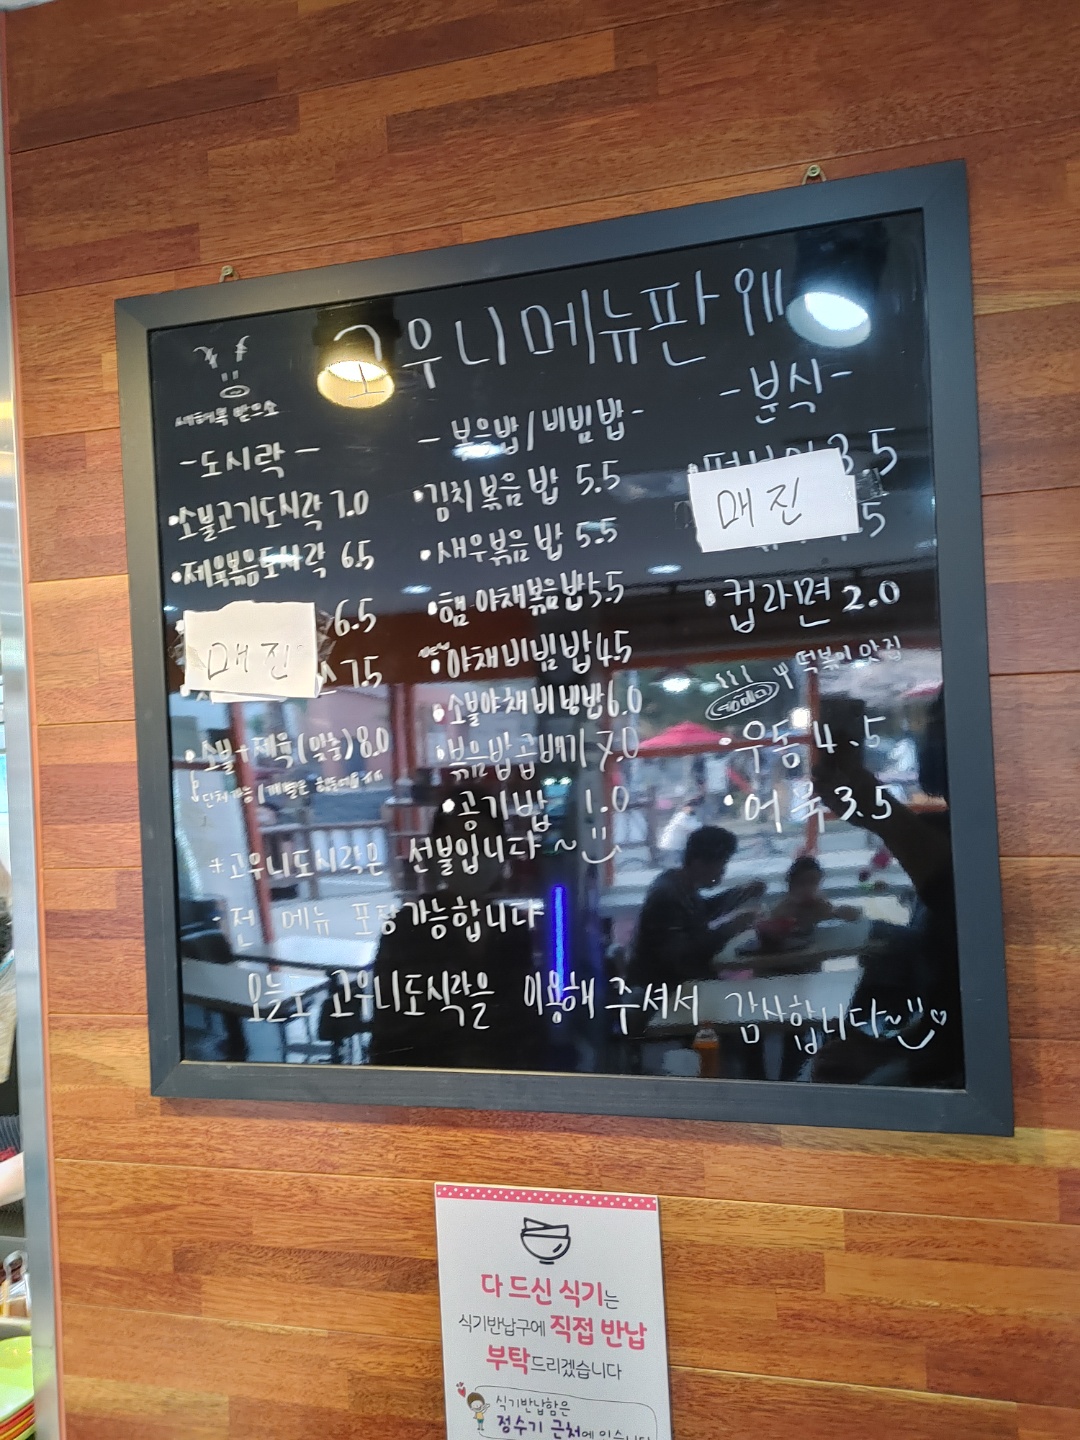 고우니메뉴판
새해복 받으소
-도시락-
•소불고기도시락 7.0
•제육볶음도시락 6.5
6.5
매진
7.5
•소불+제육(맞춤) 8.0
*고우니도시락은 선불입니다~
-전 메뉴 포장가능합니다
-볶음밥/비빔밥-
•김치볶음밥 5.5
•새우볶음밥 5.5
•햄야채볶음밥 5.5
•야채비빔밥 4.5
•소불야채비빔밥 6.0
•볶음밥곱배기 7.0
•공기밥 1.0
-분식-
3.5
매진
.5
•컵라면 2.0
떡볶이 맛집
•우동 4.5
•어묵 3.5
오늘도 고우니도시락을 이용해 주셔서 감사합니다~
다 드신 식기는
식기반납구에 직접 반납
부탁드리겠습니다
식기반납함은
정수기 근처에 있습니다